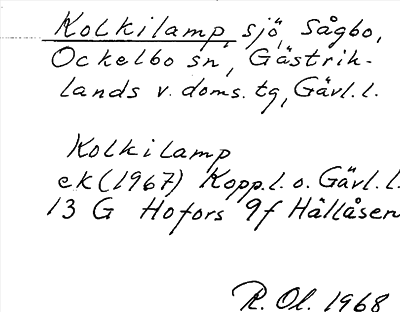 Kolkilamp, sjö, Sågbo,
Ockelbo sn, Gästrik-
lands v. doms. tg, Gävl. l.
Kolkilamp
ek (1967) Kopp. l. o. Gävl. l.
13 G Hofors 9f Hållåsen
R. Ol. 1968